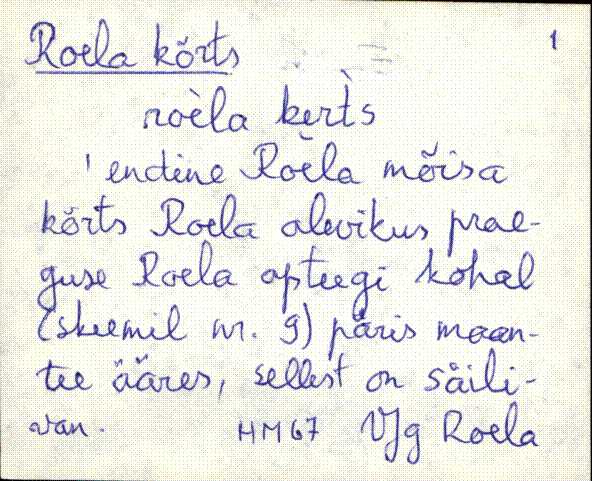 Roela kõrts 1
roèla kerts̀
' endine Roela mõisa
kõrts Roela alevikus prae-
guse Roela apteegi kohal
(skeemil nr. 9) päris maan-
tee ääres, sellest on säili-
van.
HM67 VJg Roela